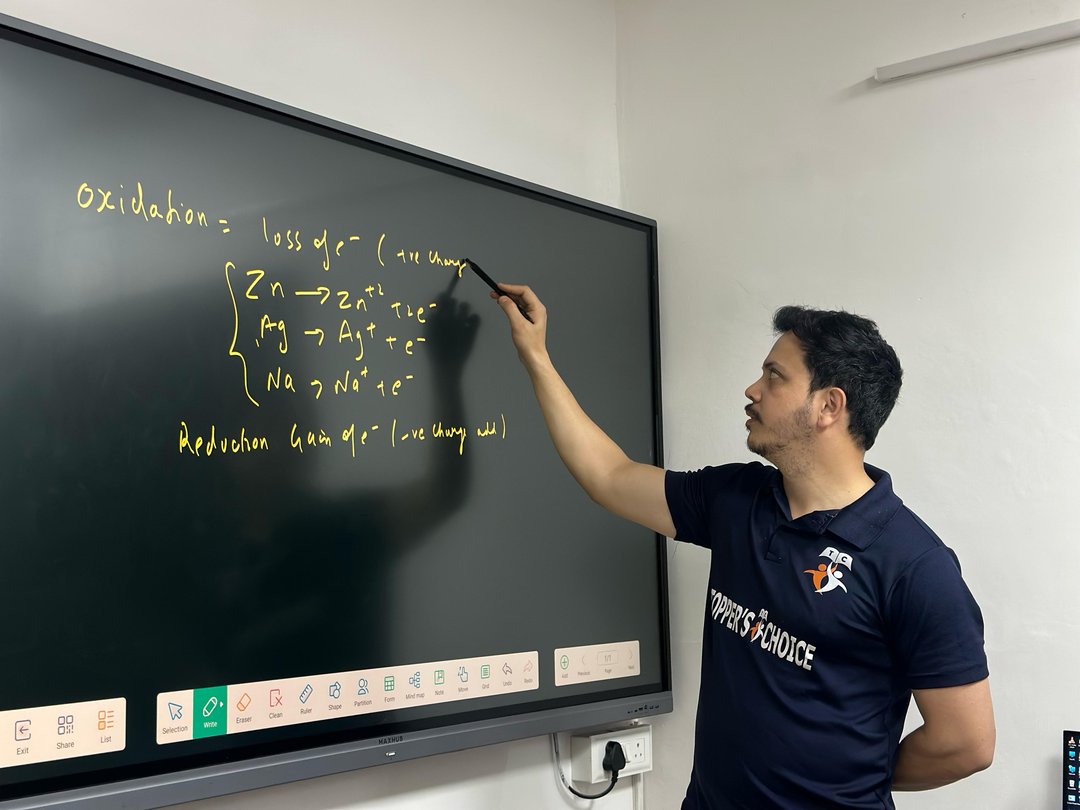 Oxidation = loss of e⁻ (+ve charge
Zn → Zn⁺² + 2e⁻
Ag → Ag⁺ + e⁻
Na → Na⁺ + e⁻
Reduction Gain of e⁻ (-ve charge add)
TC
TOPPER'S CHOICE
Exit Share List
Selection Write Eraser Clean Ruler Shape Partition Form Mind map Note Move Grid Undo Redo
Add Previous 1/1 Page Next
MAXHUB